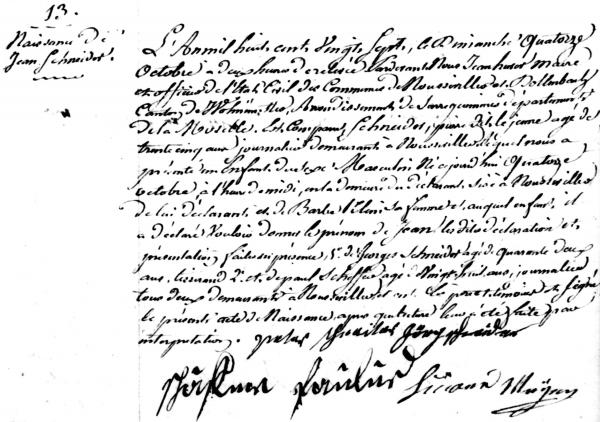 13.
Naissance de
Jean Schneider.
L'An mil huit cent Vingt Sept, le Dimanche Quatorze
Octobre a deux heures de relevée Pardevant Nous Jean maire
et officier de l'Etat Civil des Communes de Nousseviller et
Canton de Volmunster, Arrondissement de Sarreguemines département
de la Moselle. Est Comparu Schneider, pierre le jeune agé de
trente cinq ans journalier demeurant à Nousseviller lequel nous a
présenté un Enfant du sexe Masculin Né aujourd'hui Quatorze
octobre à l'heure de midi, en la demeure du déclarant, sise à Nousseviller
de lui déclarant et de Barbe sa femme, auquel enfant, il
a déclaré Vouloir donner le prénom de Jean les dites déclaration et
présentation faites en présence, 1° de Georges Schneider agé de Quarante deux
ans, tisserand 2° et de paul Scheffer agé Vingt huit ans, journalier
tous deux demeurants à Nousseviller et ont Le pere et témoins signé
le présent acte de Naissance, apres que lecture leur a été faite par
interpretation. peter
Schäffner Paulus